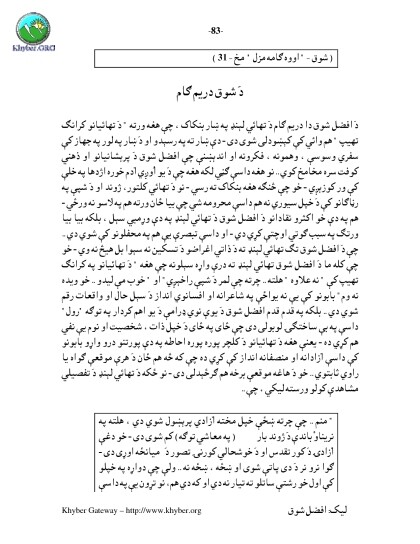 Khyber.ORG
-83-
( شوق - " اووه ګامه مزل " مخ - 31 )
دَ شوق دريم ګام
دَ افضل شوق دا دريم ګام دَ تهائي لېنډ په ښار بنکاک ، چې هغه ورته " دَ تهائيانو کرانګ
تهيپ " هم وائي کې کېښودلی شوی دی - دې ښار ته په رسېدو او دَ لاهور نه په جهاز کې
سفري وسوسې ، وهمونه ، فکرونه او اندېښنې چې افضل شوق دَ پرېشانيانو او ذهني
کوفت سره مخامخ کوي .. نو هغه داسې ګڼي لکه هغه چې دَ يو آوږې آدم خوره اژدها په خلې
کې ور کوزېږي - خو چې څنګه هغه بنکاک ته رسي - نو دَ تهائي کلتور ، ژوند او دَ شپې په
رڼاګانو کې دَ خپل سيوري نه هم داسې محرومه شي چې بيا ځان ورته هم په لاسو نه ورځي -
هم په دې خو اکثرو نقادانو دَ افضل شوق دَ تهائي لېنډ په دې وړمبي سېل ، بلکه بيا بيا
ورتګ په سبب ګوتې اوچتې کړې دي - او داسې تبصرې يې هم په محفلونو کې شوي دي ..
چې دَ افضل شوق تګ تهائي لېنډ ته دَ ذاتي اغراضو دَ تسکين نه سېوا بل هېڅ نه وي - خو
چې کله ما دَ افضل شوق تهائي لېنډ ته درې واړه سېلونه چې هغه " دَ تهائيانو په کرانګ
تهيپ کې " نه علاوه " هلته .. چرته چې لمر دَ شپې راخېژي " او " خوب مې ليدو .. خو ويده
نه وم " بابونو کې يې نه يواځې په شاعرانه او افسانوي انداز دَ سېل حال او واقعات رقم
شوي دي .. بلکه په قدم قدم افضل شوق دَ يوې نوې ډرامې دَ يو اهم کردار په توګه " رول "
داسې په بې ساختګۍ لوبولی دی چې ځای په ځای دَ خپل ذات ، شخصيت او نوم يې نفي
هم کړې ده - يعنې هغه دَ تهائيانو دَ کلچر پوره پوره احاطه په دې پورتنو درو واړو بابونو
کې داسې آزادانه او منصفانه انداز کې کړې ده چې که څه هم ځان دَ هرې موقعې ګواه يا
راوي ثابتوي .. خو دَ هاغه موقعې برخه هم ګرځېدلی دی - نو ځکه دَ تهائي لېنډ دَ تفصيلي
مشاهدې کولو ورسته ليکي ، چې ..
" منم .. چې چرته ښځې خپل مخته آزادي پرېښول شوې دي ، هلته په
نرينتاو باندې دَ ژوند بار ( په معاشي توګه ) کم شوی دی - خو دغې
آزادۍ دَ کور تقدس او دَ خوشحالې کورنۍ تصور دَ ميانځه اوړې دی -
ګوا نرو نر دَ دې پاتې شوی او ښځه ، ښځه نه .. ولې چې دواړه په خپلو
کې اول خو رشتې ساتلو ته تيار نه دي او که دي هم ، نو ترون يې په داسې
Khyber Gateway – http://www.khyber.org
ليک: افضل شوق